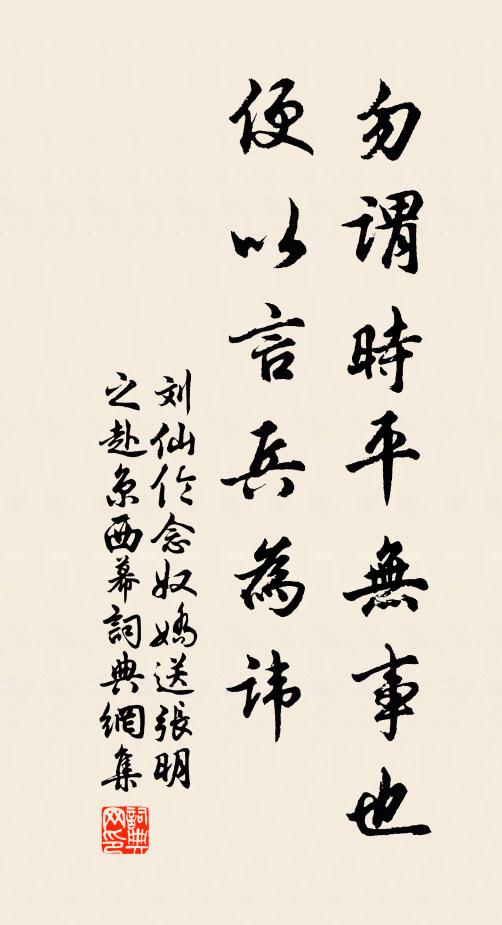 勿謂時平無事也
便以言兵為諱
刘仙伦念奴嬌送張明
之赴京西幕詞典網集
詞典网印